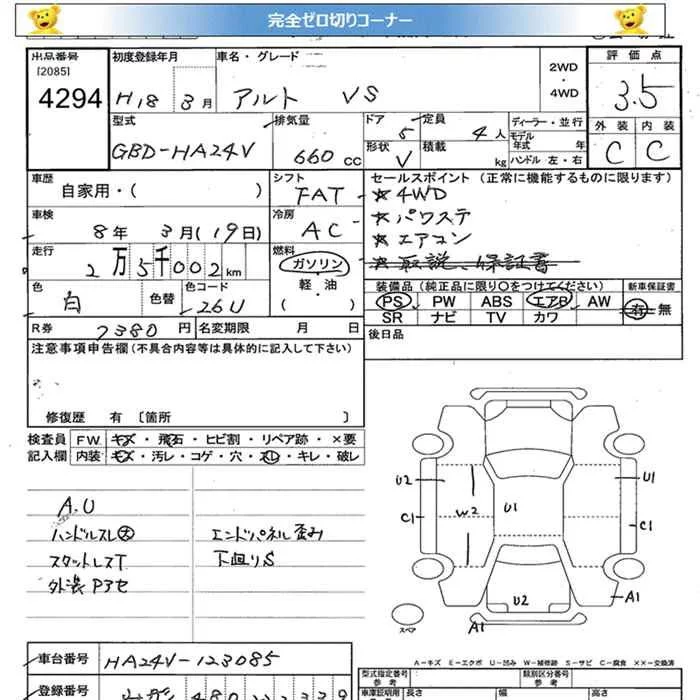 完全ゼロ切りコーナー
出品番号
[2085]
4294
初度登録年月
H18 3月
車名・グレード
アルト VS
2WD
・
4WD
評価点
3.5
外装 内装
C C
型式
GBD-HA24V
排気量
660 cc
ドア 5
定員 4人
ディーラー・並行
モデル年式 年
形状 V
積載 kg
ハンドル 左・右
車歴
自家用・( )
シフト
FAT
セールスポイント (正常に機能するものに限ります)
☆4WD
☆パワステ
☆エアコン
☆取説、保証書
車検
8年 3月(19日)
冷房
AC
走行
2万5千002km
燃料
ガソリン
軽・油
( )
色
白
色替
色コード
26U
装備品(純正品に限り○をつけてください)
新車保証書
PS PW ABS エアB AW
SR ナビ TV カワ
有・無
R券 7380円
名変期限 月 日
後日品
注意事項申告欄(不具合内容等は具体的に記入して下さい)
修復歴 有 〔箇所 〕
検査員
記入欄
FW. キズ・飛石・ヒビ割・リペア跡・×要
内装 キズ・汚レ・コゲ・穴・スレ・キレ・破レ
A.U
ハンドルスレ大
スタットレスT
外装Pアセ
エンドパネル歪み
下廻りS
U2
C1
W2
U1
U1
C1
U2
A1
A1
スペア
A-キズ E-エクボ U-凹み W-補修跡 S-サビ C-腐食 ××-交換済
車台番号
HA24V-123085
型式指定番号
参考
類別区分番号
参考
登録番号
480
車庫証明用
長さ 幅 高さ